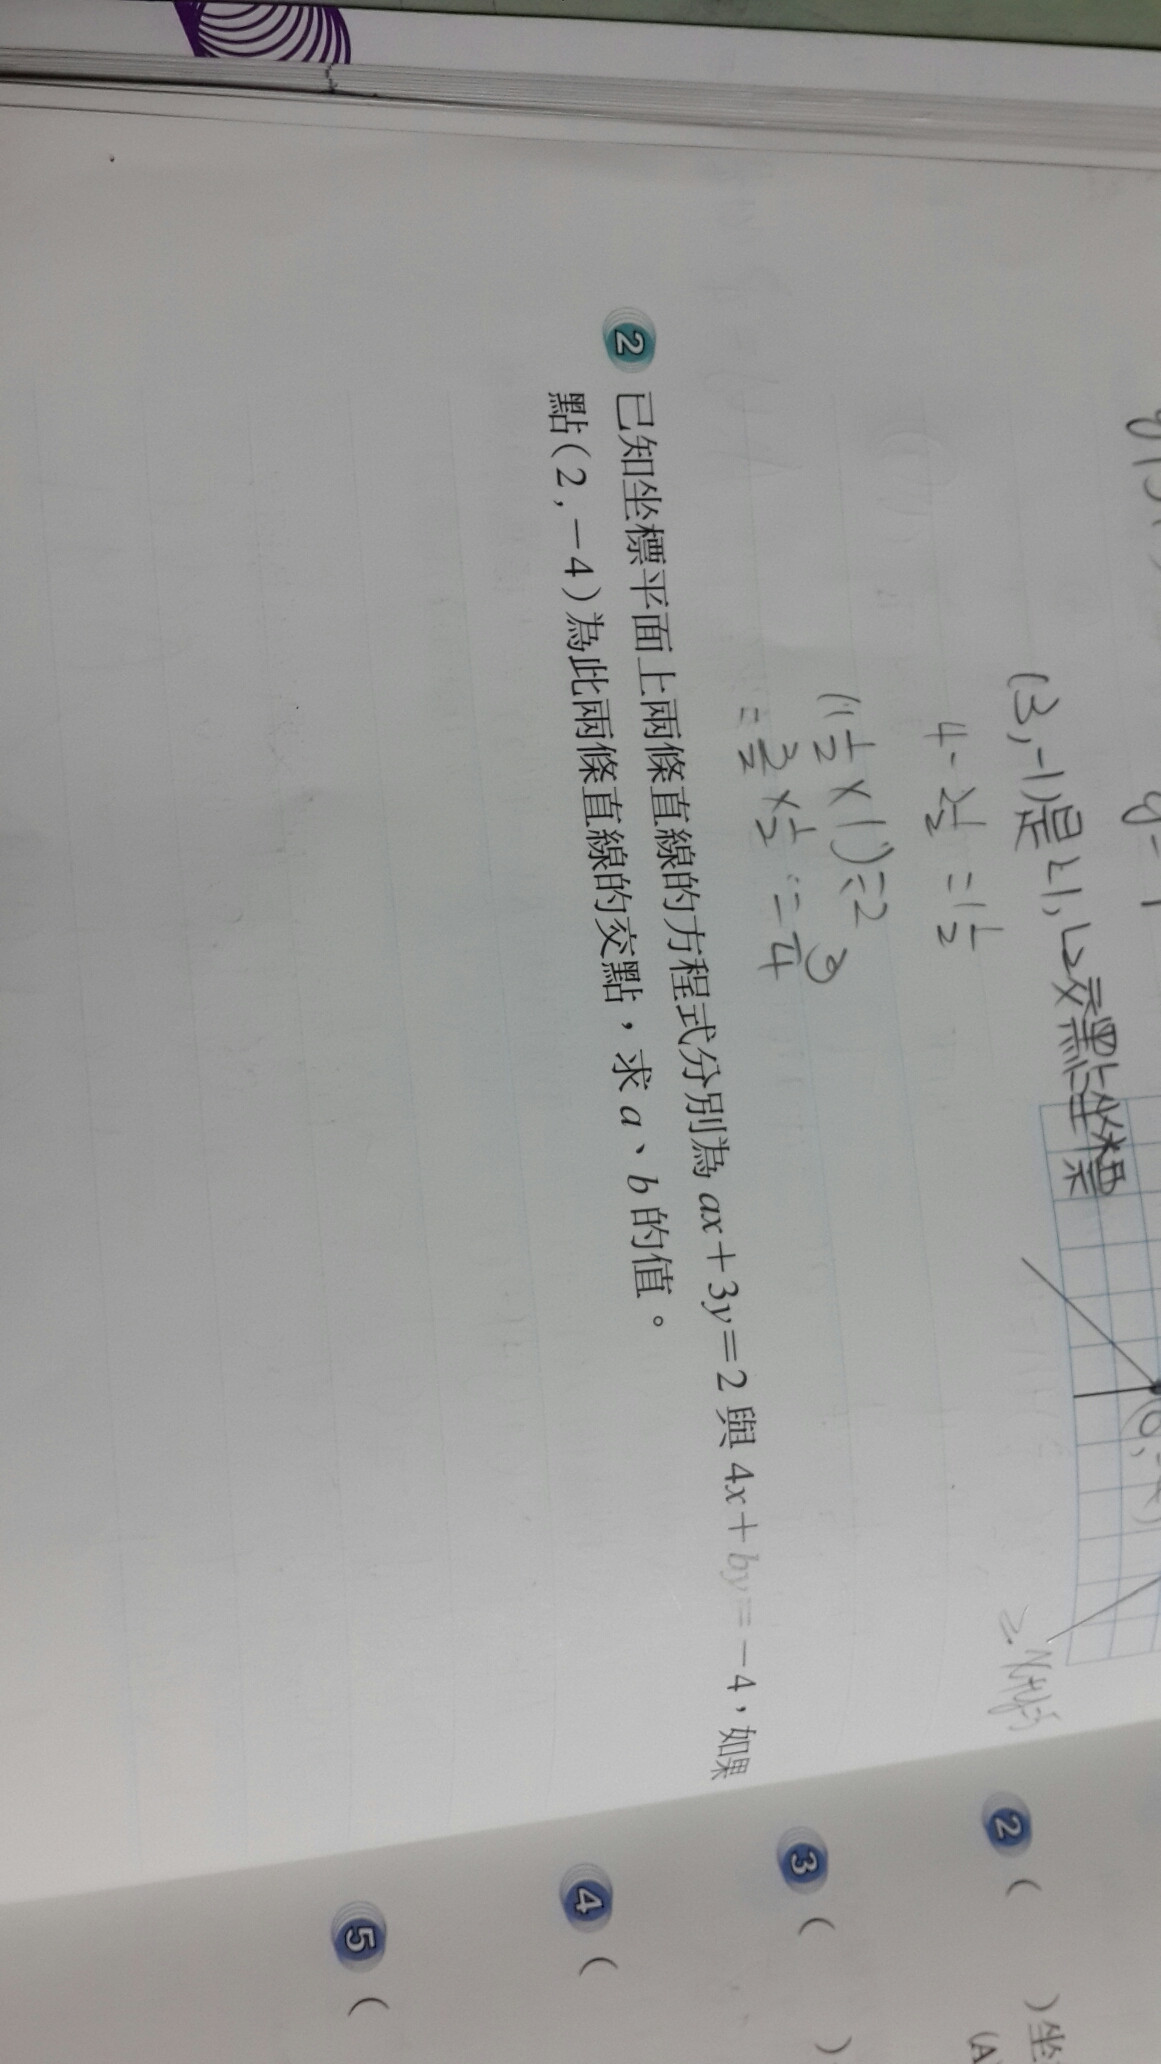 y=-1
(3,-1)是L1,L2交點坐標
4-2½=1½
(1½×1)÷2
=3/2×½=3/4
(0,-4)
x+y=5
2 已知坐標平面上兩條直線的方程式分別為 ax+3y=2 與 4x+by=-4,如果
點(2,-4)為此兩條直線的交點,求 a、b 的值。
2 ( )坐
(A
3 ( )
4 (
5 (